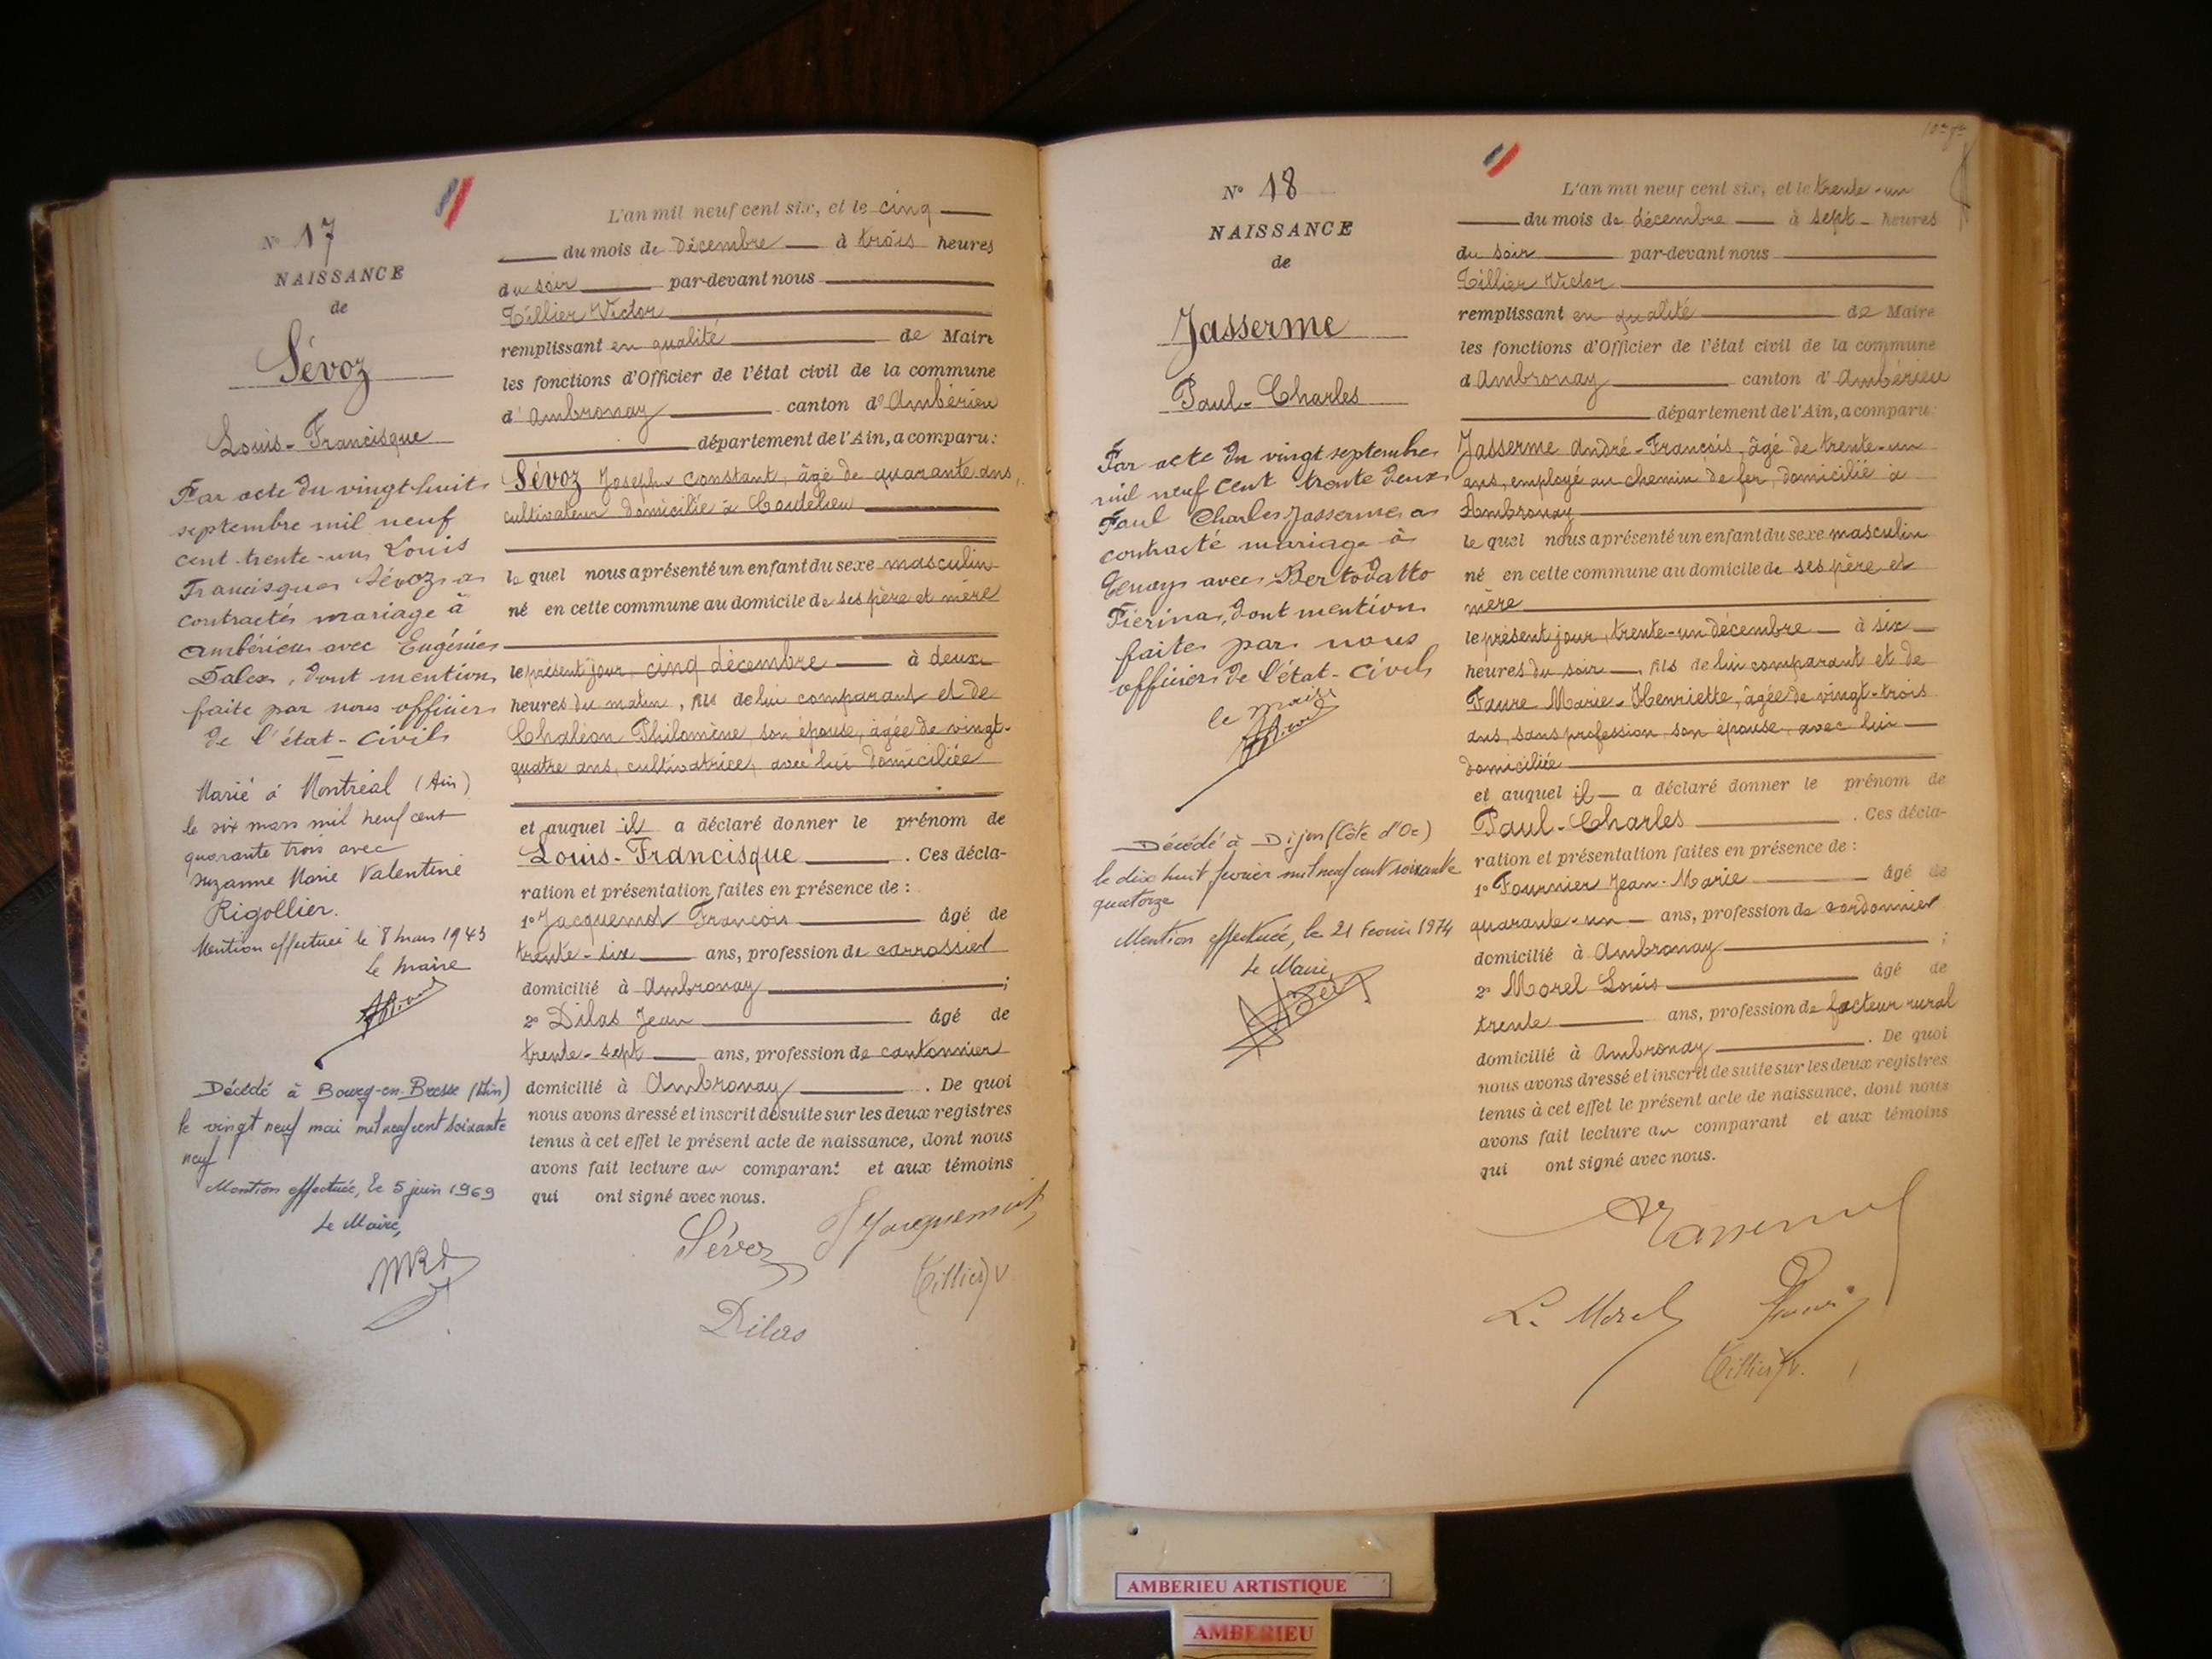 N° 17
NAISSANCE
de
Sévoz
Louis-Francisque
Par acte du vingt huit
septembre mil neuf
cent trente-un Louis
Francisque Sévoz a
contracté mariage à
Ambérieu avec Eugénie
dont mention
faite par nous officier
de l'état-civil
Marié à Montréal (Ain)
le six mars mil neuf cent
quarante trois avec
Suzanne Marie Valentine
Rigollier.
Mention effectuée le 8 mars 1943
Le maire
Décédé à Bourg-en-Bresse (Ain)
le vingt neuf mai mil neuf cent soixante
neuf
Mention effectuée, le 5 juin 1969
Le Maire,
L'an mil neuf cent six, et le cinq
du mois de décembre à trois heures
du soir par-devant nous
Tillier Victor
remplissant en qualité de Maire
les fonctions d'Officier de l'état civil de la commune
d'Ambronay canton d'Ambérieu
département de l'Ain, a comparu:
Sévoz Joseph Constant, âgé de quarante ans,
cultivateur domicilié à Coutelieu
le quel nous a présenté un enfant du sexe masculin
né en cette commune au domicile de ses père et mère
le présent jour, cinq décembre à deux
heures du matin, fils de lui comparant et de
Chaléon Philomène, son épouse, âgée de vingt-
quatre ans, cultivatrice, avec lui domiciliée
et auquel il a déclaré donner le prénom de
Louis-Francisque. Ces décla-
ration et présentation faites en présence de :
1° Jacquemot François âgé de
trente-six ans, profession de carrossier
domicilié à Ambronay;
2° Dilas Jean âgé de
trente-sept ans, profession de cantonnier
domicilié à Ambronay. De quoi
nous avons dressé et inscrit de suite sur les deux registres
tenus à cet effet le présent acte de naissance, dont nous
avons fait lecture au comparant et aux témoins
qui ont signé avec nous.
Sévoz Jacquemot
Tillier V
Dilas
N° 18
NAISSANCE
de
Jasserme
Paul-Charles
Par acte du vingt septembre
mil neuf cent trente deux
Paul Charles Jasserme a
contracté mariage à
Tenay avec Bertodatto
Pierina, dont mention
faite par nous
officier de l'état-civil
le maire
Décédé à Dijon (Côte d'Or)
le dix huit février mil neuf cent soixante
quatorze
Mention effectuée, le 21 février 1974
Le Maire,
L'an mil neuf cent six, et le trente-un
du mois de décembre à sept heures
du soir par-devant nous
Tillier Victor
remplissant en qualité de Maire
les fonctions d'Officier de l'état civil de la commune
d'Ambronay canton d'Ambérieu
département de l'Ain, a comparu:
Jasserme André-François, âgé de trente-un
ans, employé au chemin de fer, domicilié à
Ambronay
le quel nous a présenté un enfant du sexe masculin
né en cette commune au domicile de ses père et
mère
le présent jour, trente-un décembre à six
heures du soir, fils de lui comparant et de
Faure Marie-Henriette, âgée de vingt-trois
ans, sans profession, son épouse, avec lui
domiciliée
et auquel il a déclaré donner le prénom de
Paul-Charles. Ces décla-
ration et présentation faites en présence de :
1° Fournier Jean-Marie âgé de
quarante-un ans, profession de cordonnier
domicilié à Ambronay;
2° Morel Louis âgé de
trente ans, profession de facteur rural
domicilié à Ambronay. De quoi
nous avons dressé et inscrit de suite sur les deux registres
tenus à cet effet le présent acte de naissance, dont nous
avons fait lecture au comparant et aux témoins
qui ont signé avec nous.
Jasserme
L. Morel
Tillier V.
AMBERIEU ARTISTIQUE
AMBERIEU